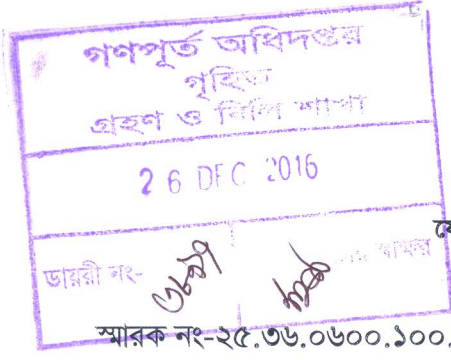 গণপূর্ত অধিদপ্তর
গৃহিত
গ্রহণ ও বিলি শাখা
26 DEC 2016
ডায়রী নং-
স্বাক্ষর
স্মারক নং-২৫.৩৬.০৬০০.১০০.